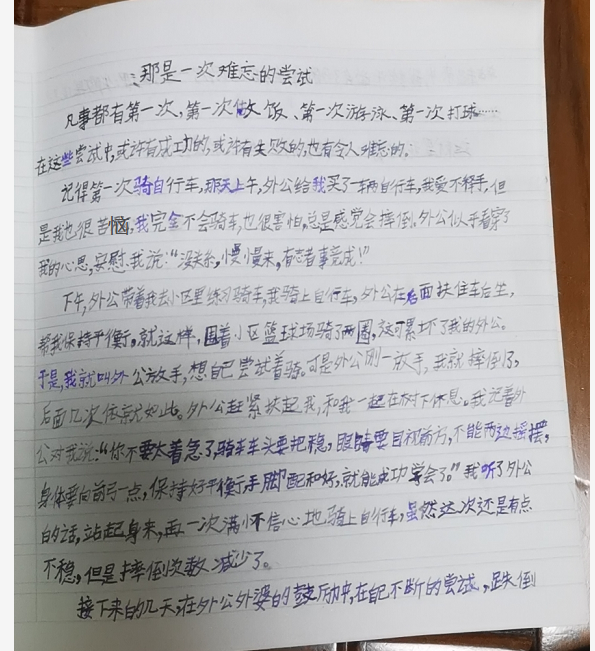 那是一次难忘的尝试
凡事都有第一次,第一次做饭、第一次游泳、第一次打球……
在这些尝试中,或许有成功的,或许有失败的,也有令人难忘的。
记得第一次骑自行车,那天上午,外公给我买了一辆自行车,我爱不释手,但
是我也很苦恼,我完全不会骑车,也很害怕,总是感觉会摔倒。外公似乎看穿了
我的心思,安慰我说:“没关系,慢慢来,有志者事竟成!”
下午,外公带着我去小区里练习骑车,我骑上自行车,外公在后面扶住车后坐,
帮我保持平衡,就这样,围着小区篮球场骑了两圈,这可累坏了我的外公。
于是,我就叫外公放手,想自己尝试着骑。可是外公刚一放手,我就摔倒了,
后面几次依就如此。外公赶紧扶起我,和我一起在树下休息。我说着外
公对我说:“你不要太着急了,骑车车头要把稳,眼睛要目视前方,不能两边摇摆,
身体要向前弓一点,保持好平衡手脚配和好,就能成功学会了。”我听了外公
的话,站起身来,再一次满怀信心地骑上自行车,虽然这次还是有点
不稳,但是摔倒次数减少了。
接下来的几天,在外公外婆的鼓励中,在自己不断的尝试,跌倒